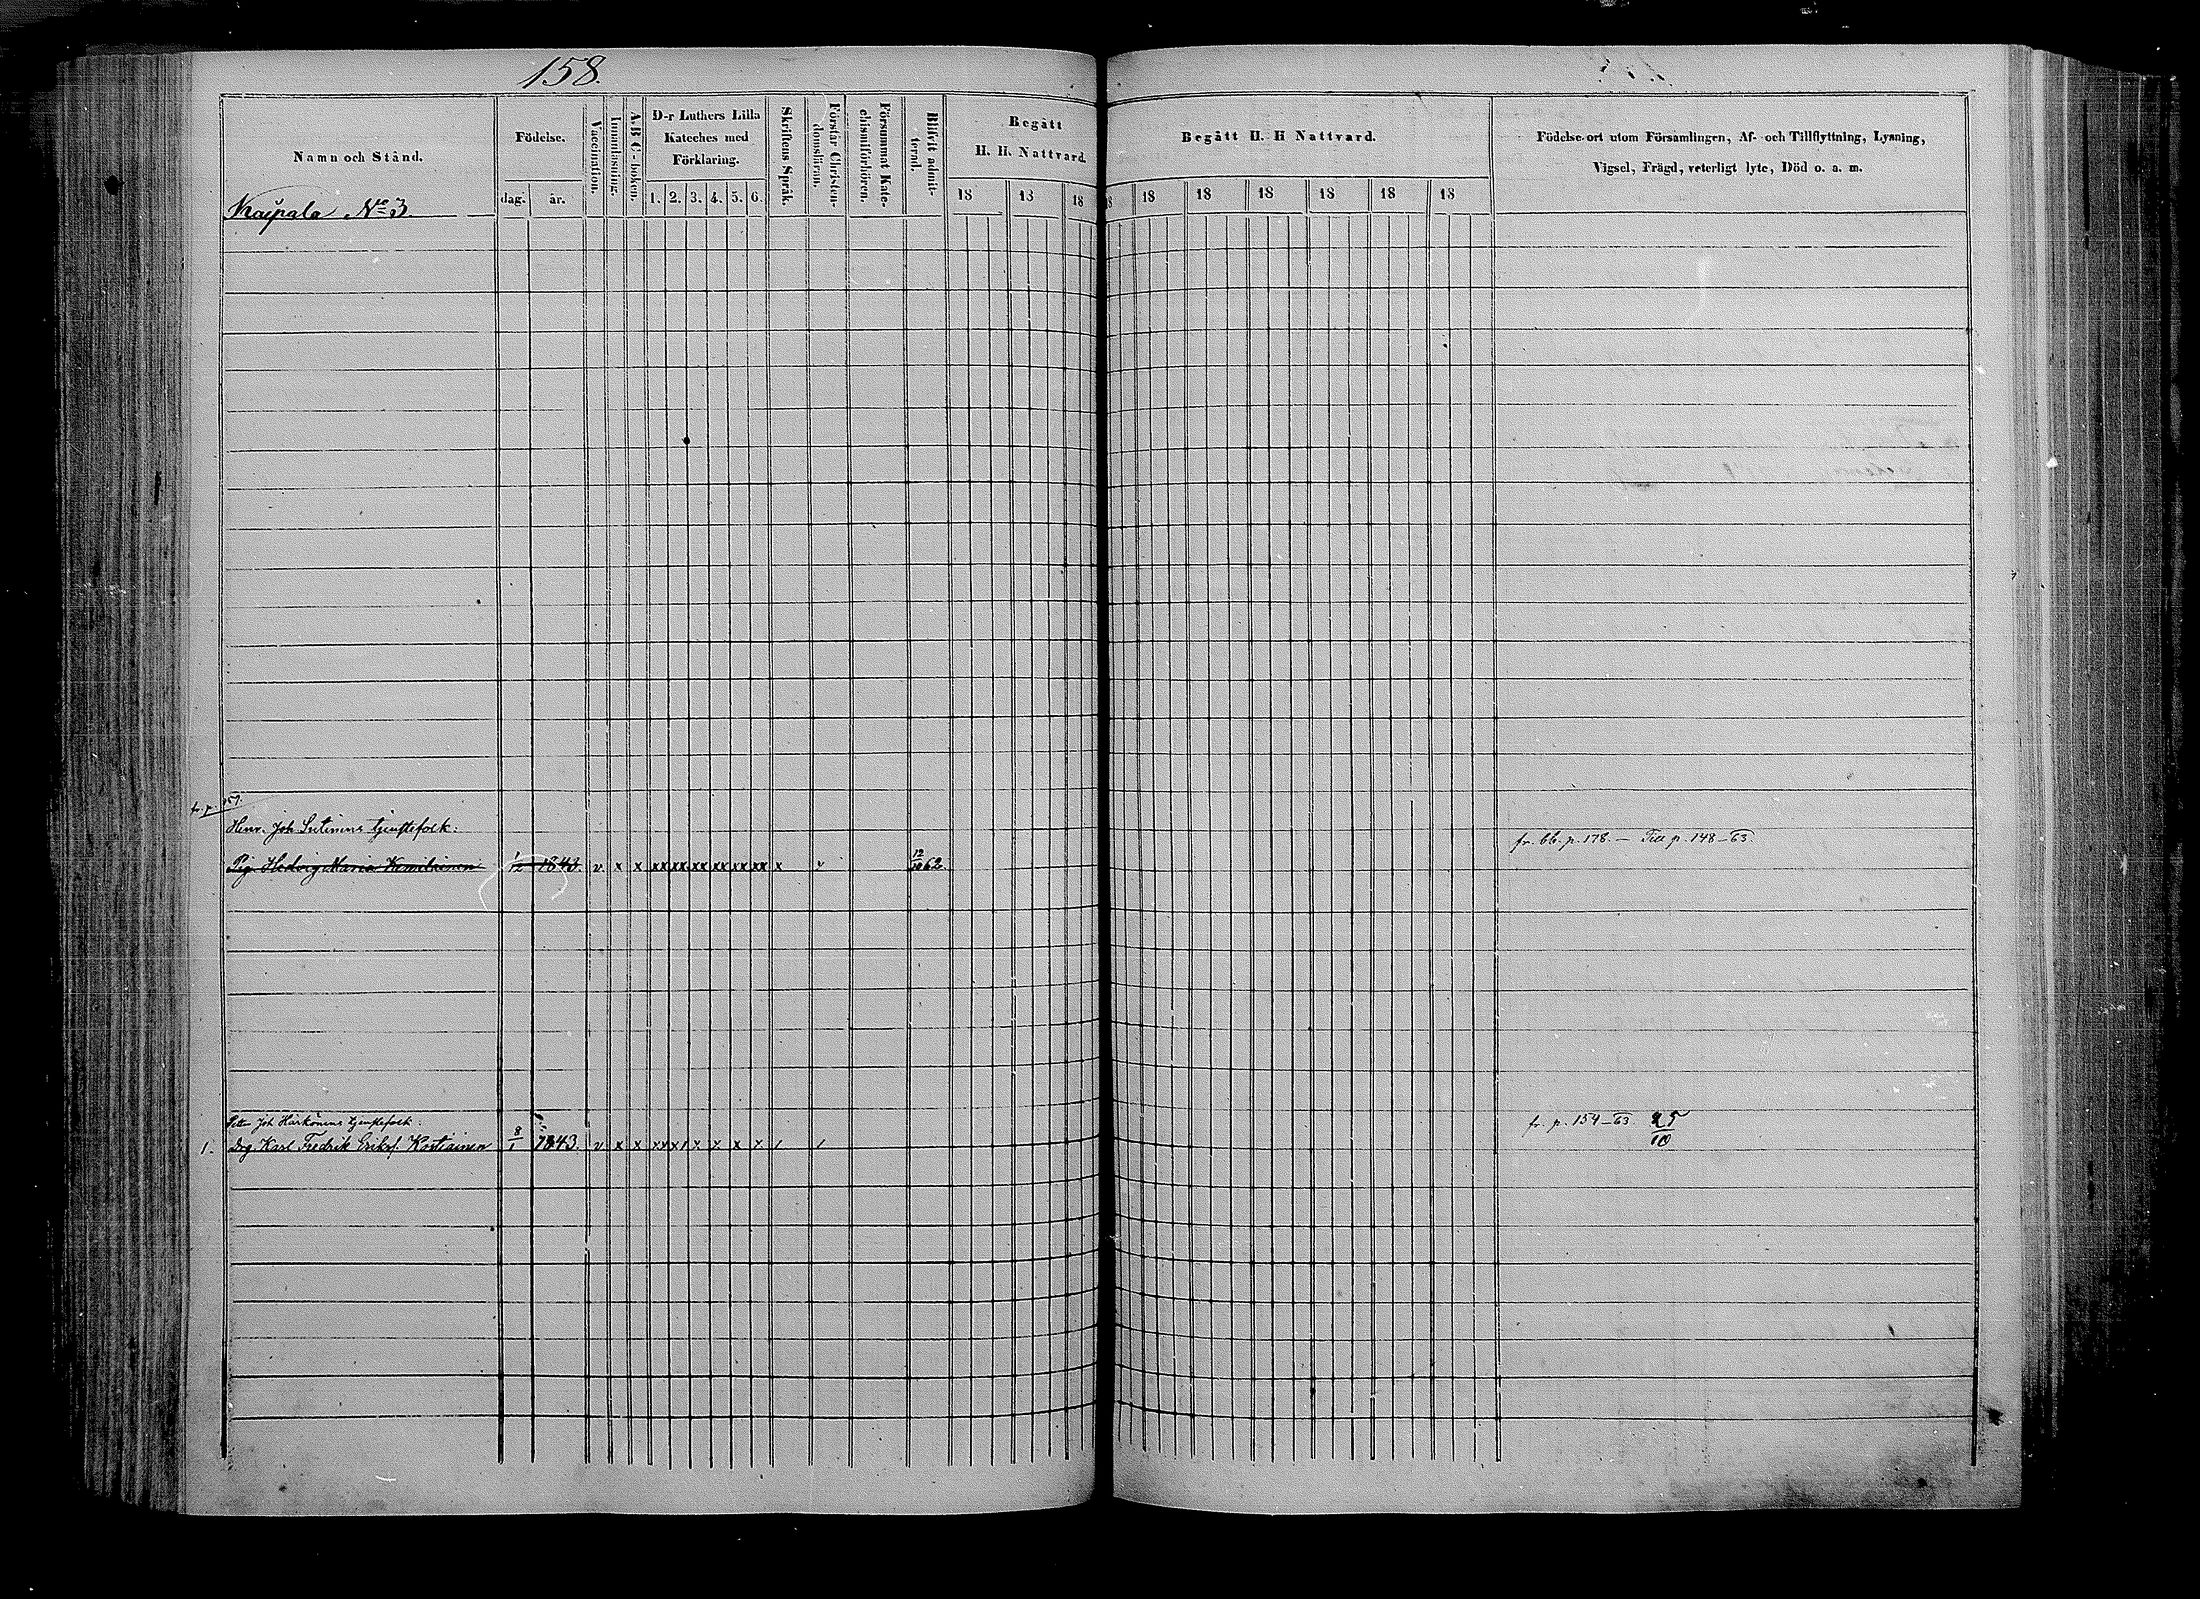 158.
Namn och Stånd.
Kaipala No 3.
Födelse.
dag. år.
Vaccination.
Innanläsning.
A, B C-boken.
D-r Luthers Lilla
Kateches med
Förklaring.
1. 2. 3. 4. 5. 6.
Skriftens Språk.
Förstår Christen-
domsläran.
Försummat Kate-
chismiförhören.
Blifvit admit-
terad.
Begått
H. H. Nattvard.
18 18 18
Begått H. H Nattvard.
18 18 18 18 18 18 18
Födelse-ort utom Församlingen, Af- och Tillflyttning, Lysning,
Vigsel, Frägd, veterligt lyte, Död o. a. m.
fr. p. 157.
Henr. Joh. tjenstefolk:
Pig. Hedvig Maria 1/12 1843. v. x x xx xx xx xx xx xx x v 12/10 62
fr. bb. p. 178. — Till p. 148—63.
Petter Joh Härkönens tjenstefolk:
1. Drg. Karl Fredrik Eriksf. Kostiainen 8/1 1843. v x x
fr. p. 154—63 25/10